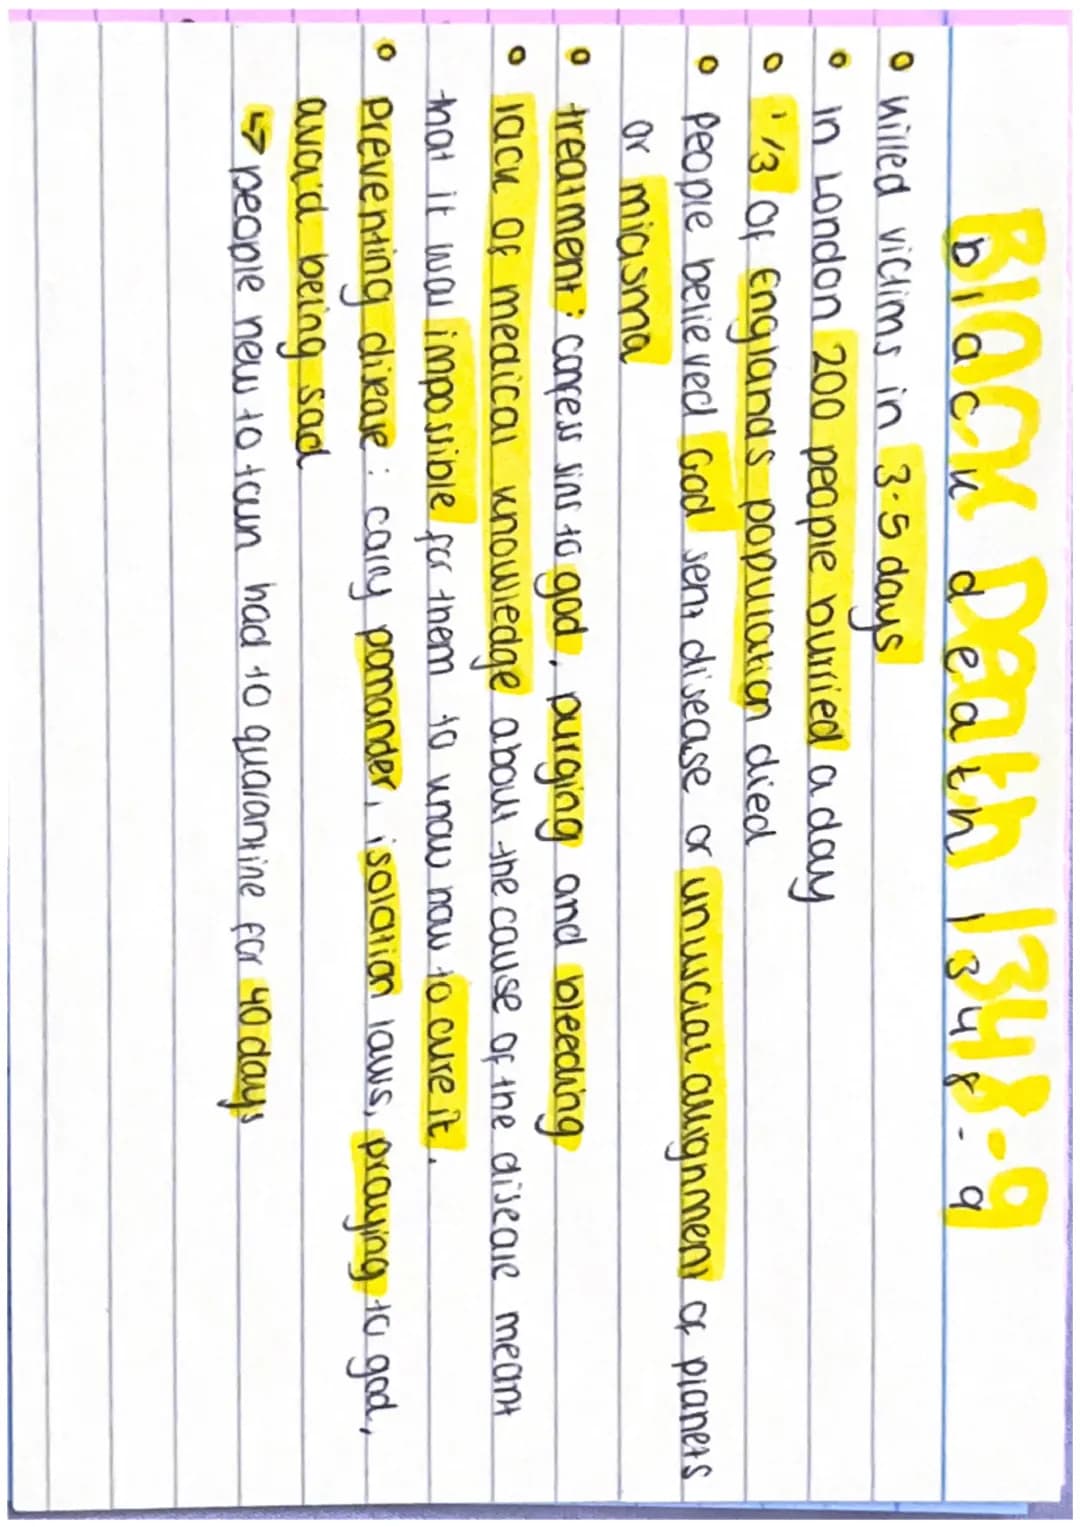 Black Death 1348-9
black death 1348-9
killed victims in 3-5 days
in London 200 people burried a day
1/3 of Englands population died
people believed God sent disease or unusual alignment of planets
or miasma
treatment: confess sins to god, purging and bleeding
lack of medical knowledge about the cause of the disease meant
that it was impossible for them to know how to cure it.
preventing disease: carry pomander, isolation laws, praying to god,
avoid being sad
↳ people new to town had to quarantine for 40 days